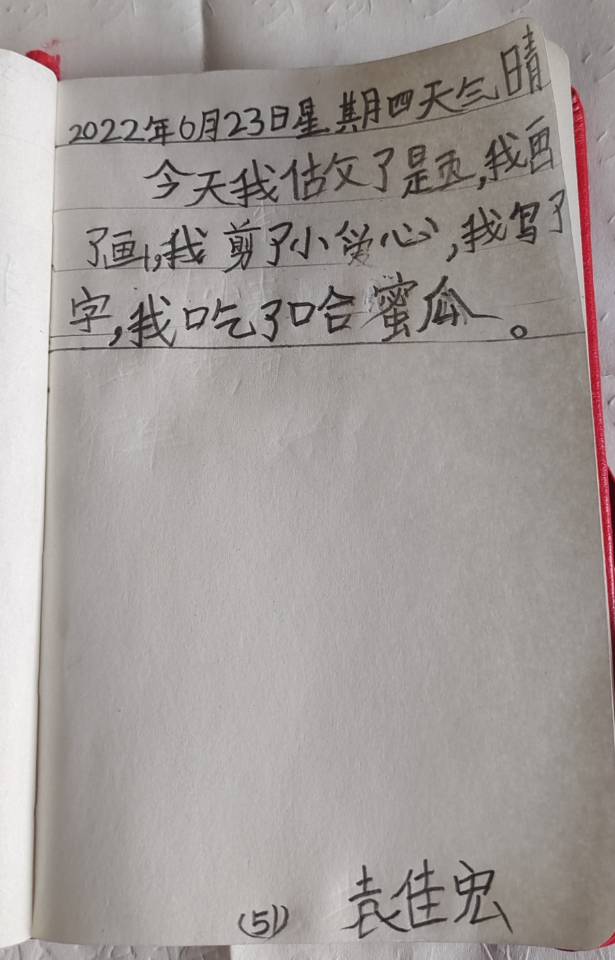 2022年6月23日星期四天气晴
今天我估攵了是页,我画
了画,我剪了小爱心,我写了
字,我吃了哈蜜瓜。
(51) 袁佳宏